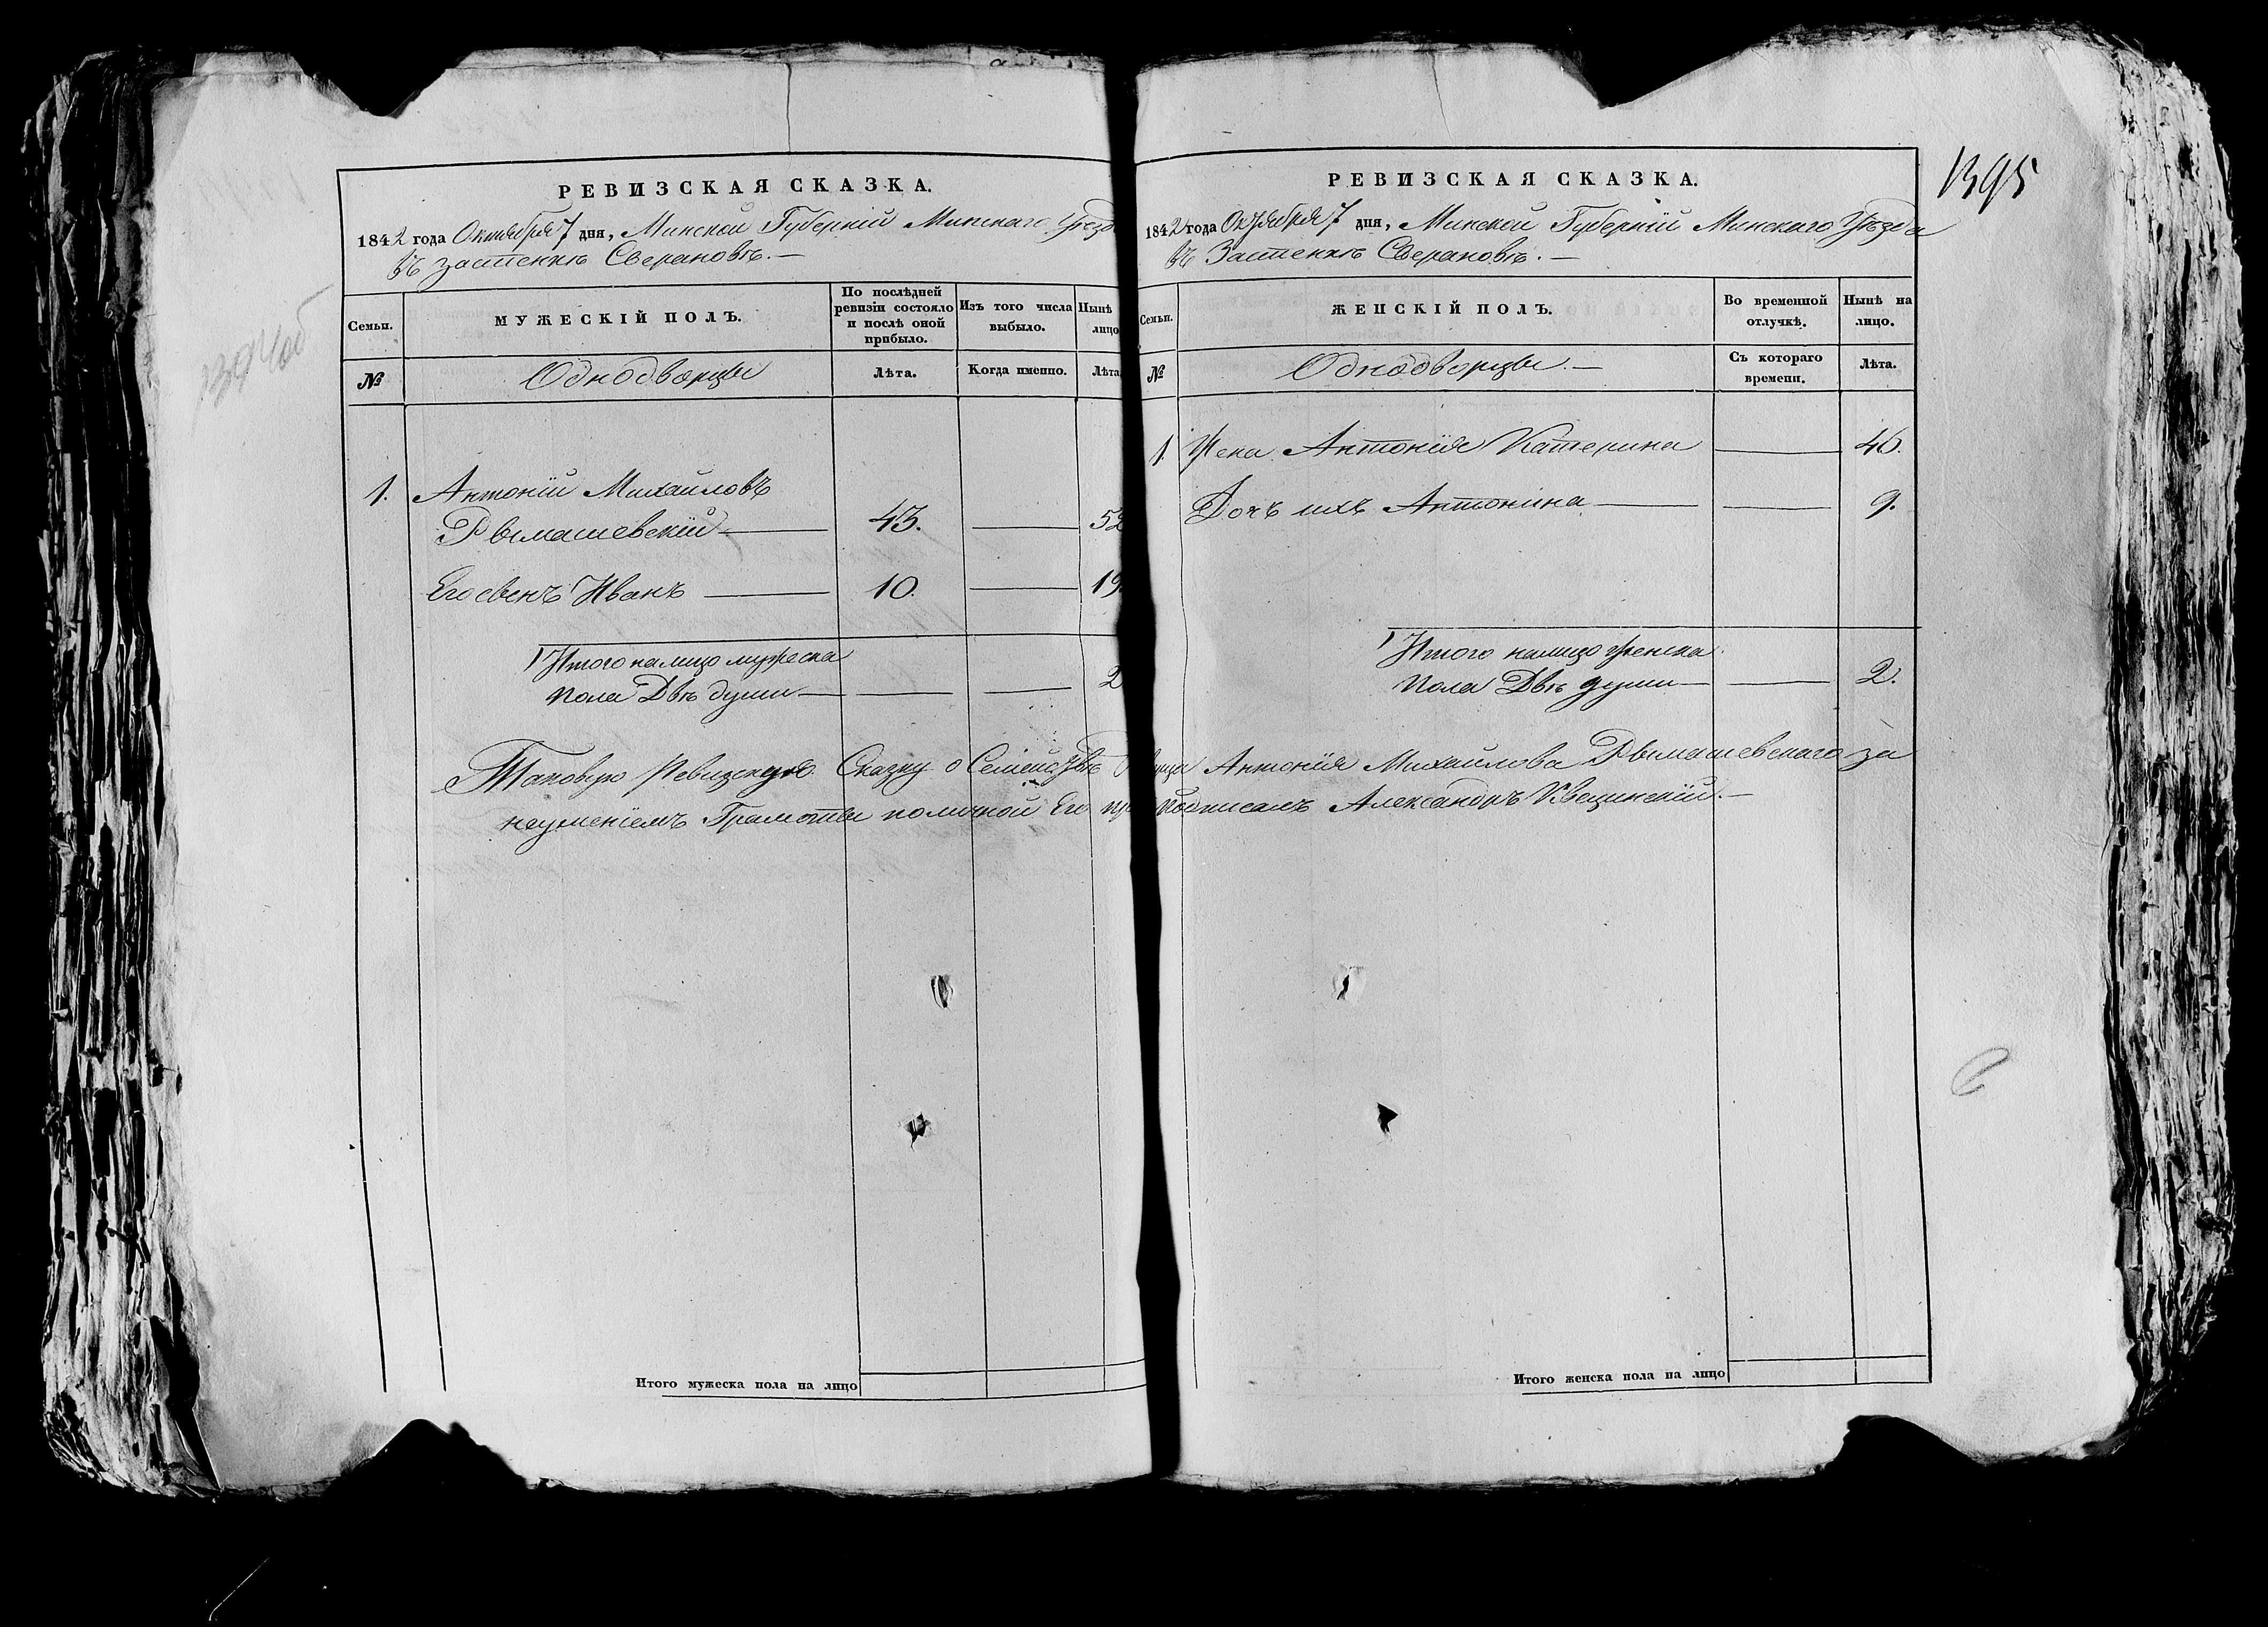 РЕВИЗСКАЯ СКАЗКА.
1842 года Октября 7 дня, Минской Губерніи Минскаго Уезд
Въ застенкѣ Сверановѣ. —
Семьи.
МУЖЕСКІЙ ПОЛЪ.
По послѣдней ревизіи состояло и послѣ оной прибыло.
Изъ того числа выбыло.
Нынѣ лицо
№
Однодворцы
Лѣта.
Когда именно.
Лѣта
1. Антоній Михайловъ
Рымашевскій — 43. — 52
Его сынъ Иванъ — 10. — 19.
Итого налицо мужеска
пола Двѣ души — — — 2
Итого мужеска пола на лицо
1395
РЕВИЗСКАЯ СКАЗКА.
1842 года Октября 7 дня, Минской Губерніи Минскаго Уѣзда
Въ Застенкѣ Сверановѣ. —
Семьи.
ЖЕНСКІЙ ПОЛЪ.
Во временной отлучкѣ.
Нынѣ на лицо.
№
Однодворцы. —
Съ котораго времени.
Лѣта.
1. Жена Антонія Катерина — 46.
Дочь ихъ Антонина — — 9.
Итого налицо женска
пола Двѣ души — — 2.
Таковую Ревизскую Сказку о Семействѣ Антонія Михайлова Рымашевскаго за
неуменіемъ Грамоты поличной Его подписалъ Александръ Квецинскій. —
Итого женска пола на лицо